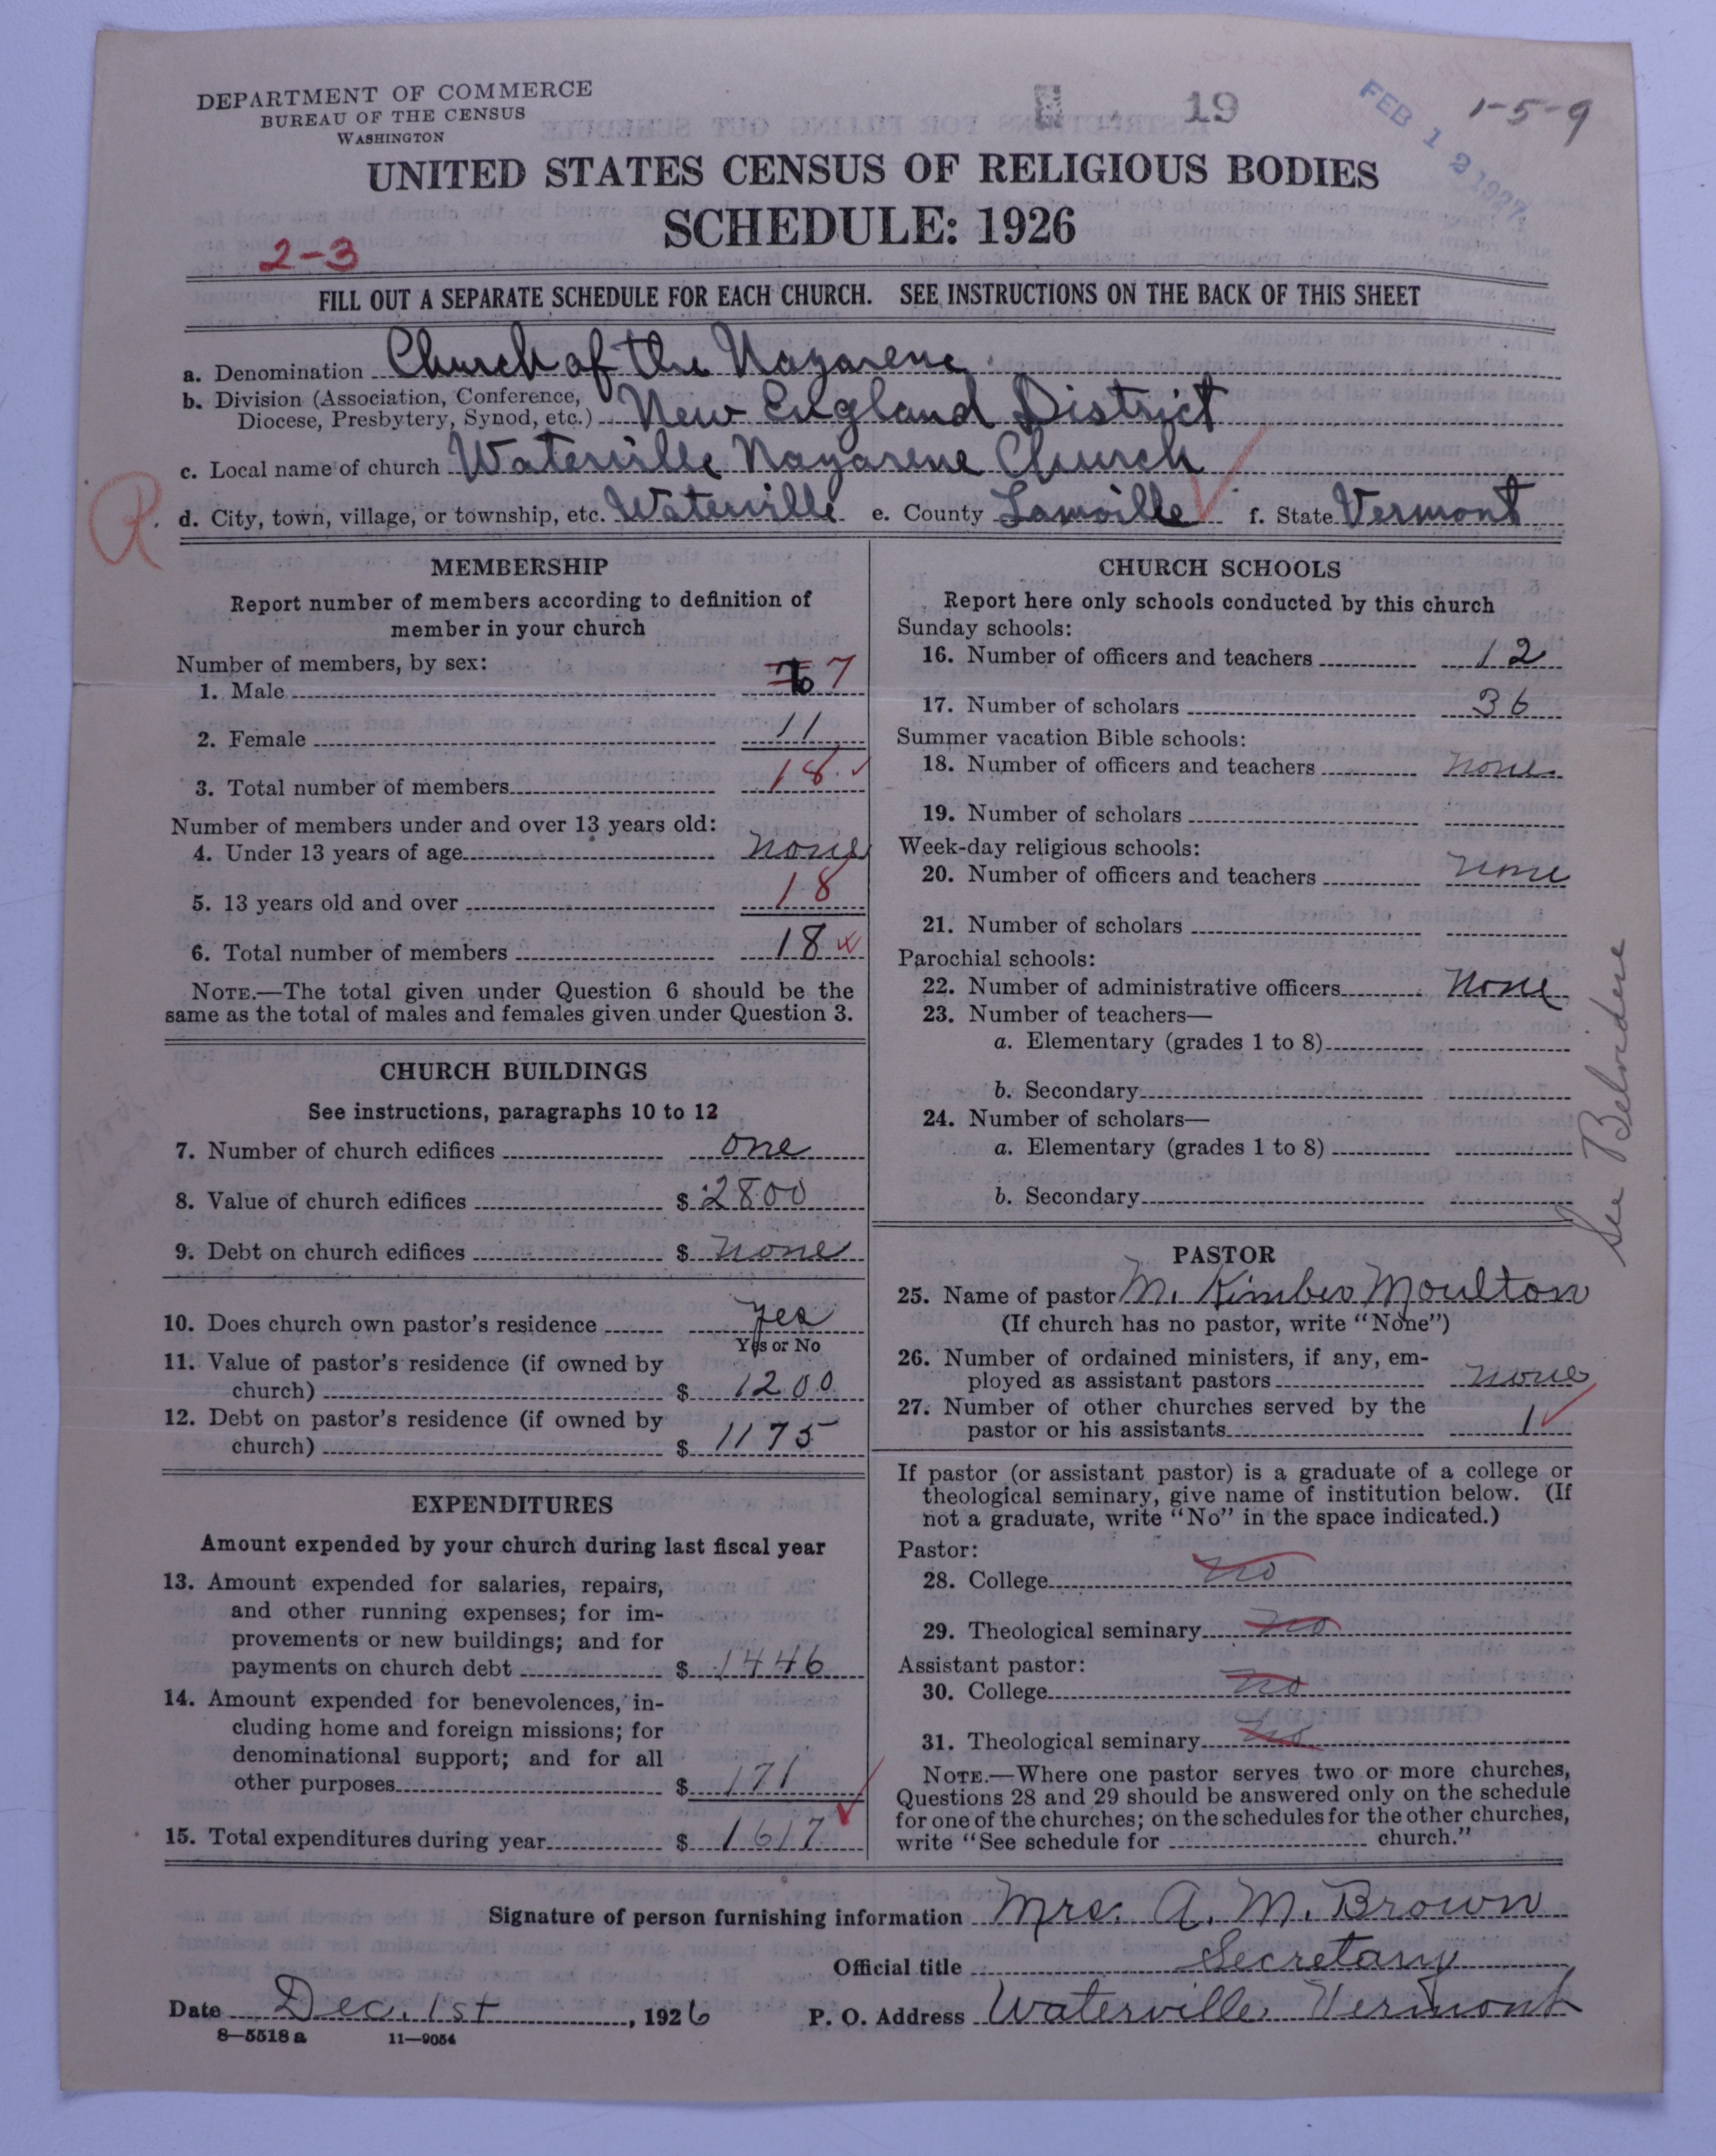 DEPARTMENT OF COMMERCE
BUREAU OF THE CENSUS
WASHINGTON
19
FEB 12 1927
1-5-9
UNITED STATES CENSUS OF RELIGIOUS BODIES
SCHEDULE: 1926
2-3
FILL OUT A SEPARATE SCHEDULE FOR EACH CHURCH. SEE INSTRUCTIONS ON THE BACK OF THIS SHEET
a. Denomination Church of the Nazarene
b. Division (Association, Conference, Diocese, Presbytery, Synod, etc.) New England District
c. Local name of church Waterville Nazarene Church
R. d. City, town, village, or township, etc. Waterville e. County Lamoille f. State Vermont
MEMBERSHIP
Report number of members according to definition of
member in your church
Number of members, by sex:
1. Male 7
2. Female 11
3. Total number of members 18
Number of members under and over 13 years old:
4. Under 13 years of age none
5. 13 years old and over 18
6. Total number of members 18
NOTE.—The total given under Question 6 should be the
same as the total of males and females given under Question 3.
CHURCH BUILDINGS
See instructions, paragraphs 10 to 12
7. Number of church edifices one
8. Value of church edifices $ 2800
9. Debt on church edifices $ none
10. Does church own pastor's residence yes
Yes or No
11. Value of pastor's residence (if owned by
church) $ 1200
12. Debt on pastor's residence (if owned by
church) $ 1175
EXPENDITURES
Amount expended by your church during last fiscal year
13. Amount expended for salaries, repairs,
and other running expenses; for im-
provements or new buildings; and for
payments on church debt $ 1446
14. Amount expended for benevolences, in-
cluding home and foreign missions; for
denominational support; and for all
other purposes $ 171
15. Total expenditures during year $ 1617
CHURCH SCHOOLS
Report here only schools conducted by this church
Sunday schools:
16. Number of officers and teachers 12
17. Number of scholars 36
Summer vacation Bible schools:
18. Number of officers and teachers none
19. Number of scholars
Week-day religious schools:
20. Number of officers and teachers none
21. Number of scholars
Parochial schools:
22. Number of administrative officers None
23. Number of teachers—
a. Elementary (grades 1 to 8)
b. Secondary
24. Number of scholars—
a. Elementary (grades 1 to 8)
b. Secondary
See Belvidere
PASTOR
25. Name of pastor M. Kimber Moulton
(If church has no pastor, write "None")
26. Number of ordained ministers, if any, em-
ployed as assistant pastors none
27. Number of other churches served by the
pastor or his assistants 1
If pastor (or assistant pastor) is a graduate of a college or
theological seminary, give name of institution below. (If
not a graduate, write "No" in the space indicated.)
Pastor:
28. College no
29. Theological seminary no
Assistant pastor:
30. College no
31. Theological seminary no
NOTE.—Where one pastor serves two or more churches,
Questions 28 and 29 should be answered only on the schedule
for one of the churches; on the schedules for the other churches,
write "See schedule for church."
Signature of person furnishing information Mrs. A. M. Brown
Official title Secretary
Date Dec. 1st, 1926 P. O. Address Waterville, Vermont
8—5518 a 11—9054